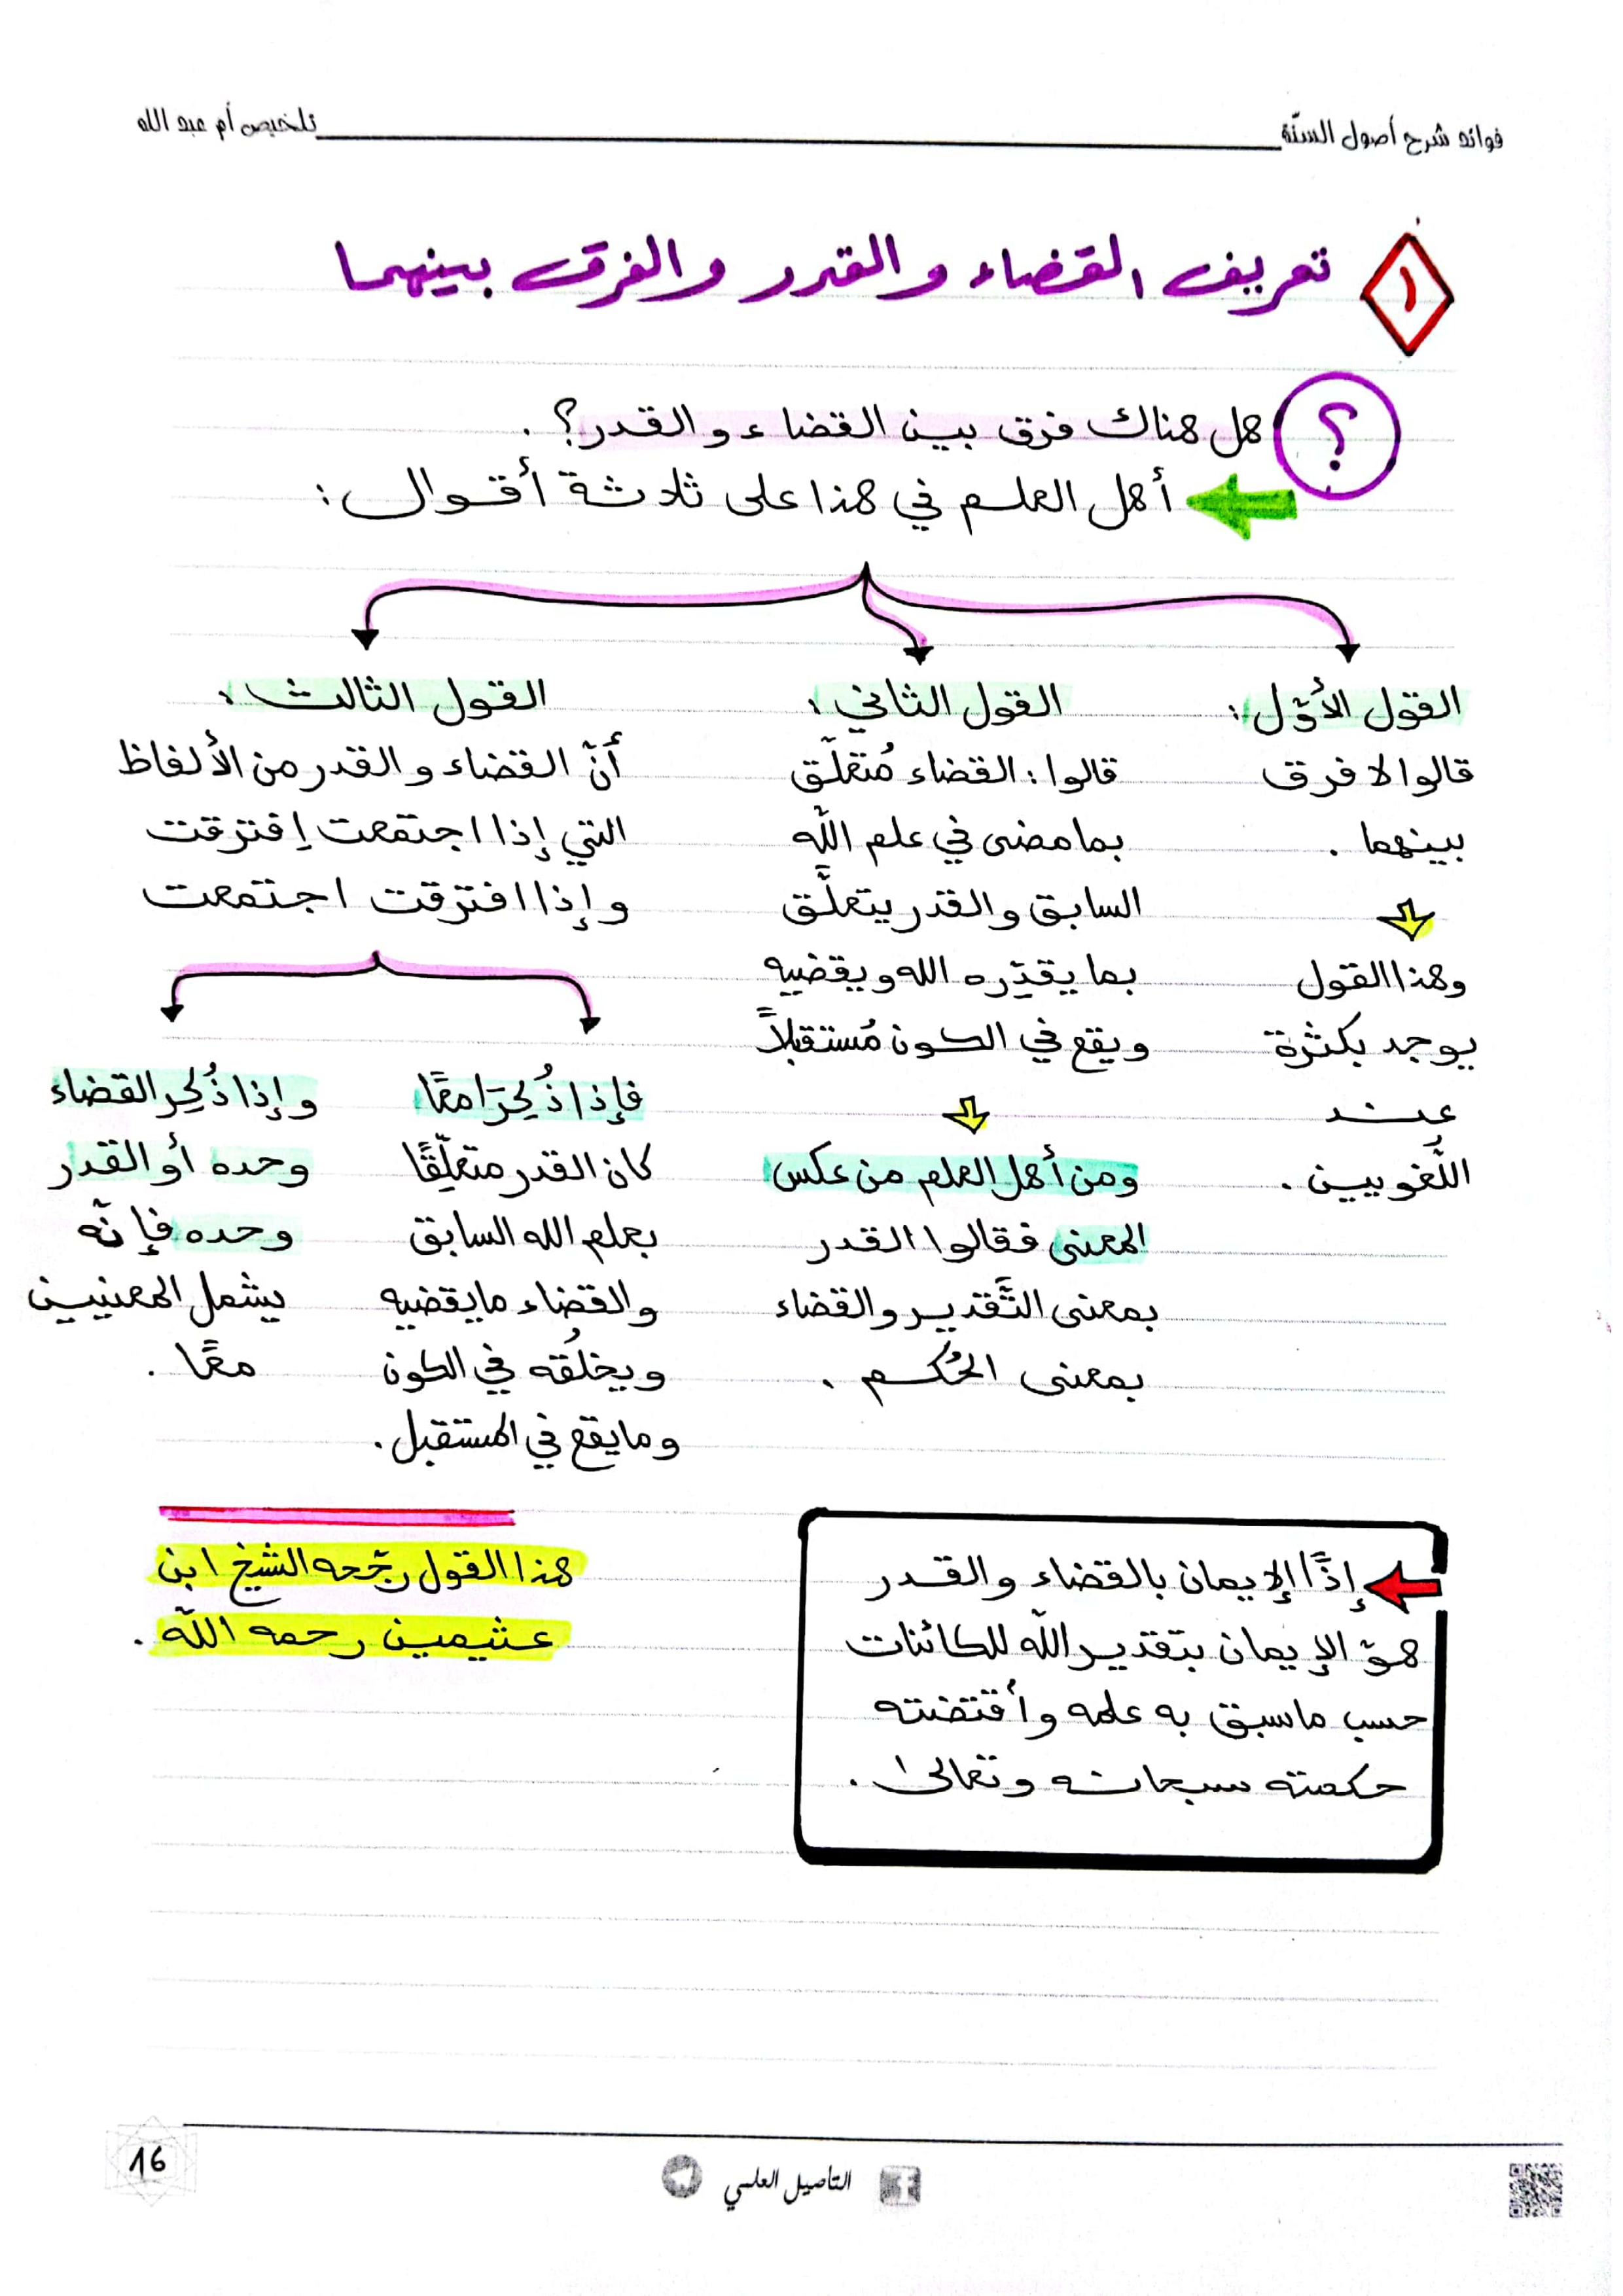 فوائد شرح أصول السنّة
تلخيص أم عبد الله
١
تعريف القضاء والقدر والفرق بينهما
؟
هل هناك فرق بين القضاء والقدر؟.
أهل العلم في هذا على ثلاثة أقوال:
القول الأوّل:
قالوا لا فرق
بينهما.
وهذا القول
يوجد بكثرة
عند
اللُّغويين.
القول الثاني:
قالوا: القضاء مُتعلّق
بما مضى في علم اللّه
السابق والقدر يتعلَّق
بما يقدِّره الله ويقضيه
ويقع في الكون مُستقبلاً
ومن أهل العلم من عكس
المعنى فقالوا القدر
بمعنى التَّقدير والقضاء
بمعنى الحُكم.
القول الثالث:
أنّ القضاء والقدر من الألفاظ
التي إذا اجتمعت إفترقت
وإذا افترقت اجتمعت
فإذا ذُكِرَا معًا
كان القدر متعلِّقًا
بعلم الله السابق
والقضاء ما يقضيه
ويخلُقه في الكون
وما يقع في المستقبل.
وإذا ذُكِر القضاء
وحده أو القدر
وحده فإنّه
يشمل المعنيين
معًا.
هذا القول رجّحه الشيخ ابن
عثيمين رحمه اللّه.
إذًا الإيمان بالقضاء والقدر
هو الإيمان بتقدير اللّه للكائنات
حسب ما سبق به علمه وأقتضته
حكمته سبحانه وتعالى.
التأصيل العلمي
16